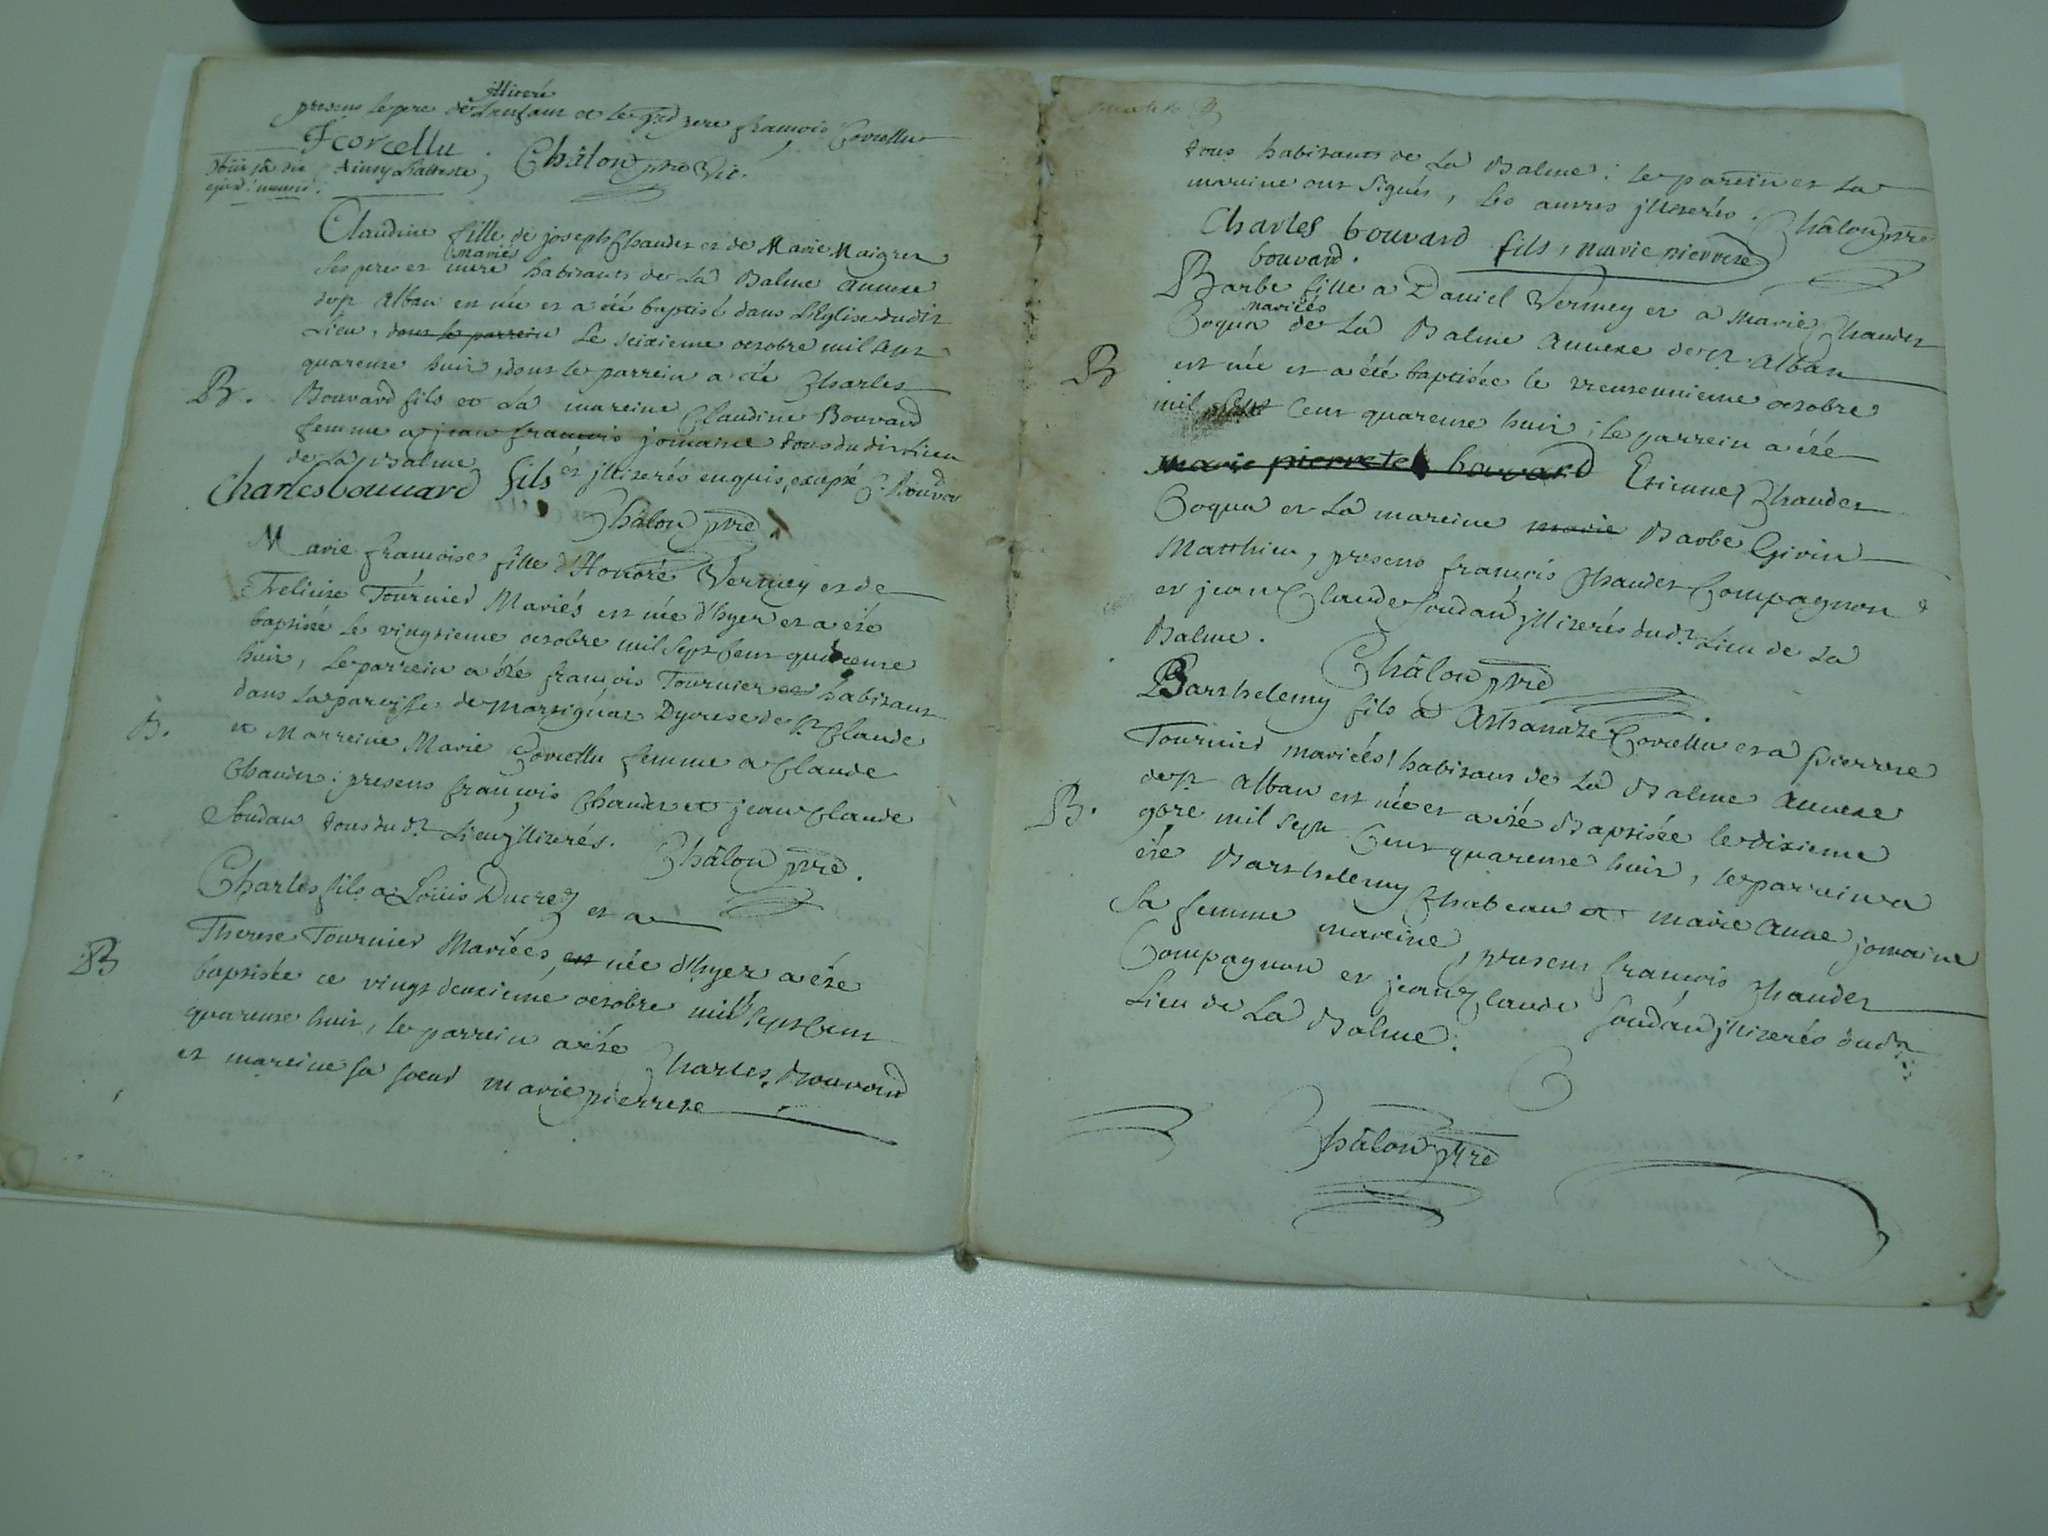 illiteré
presens le pere de L'enfant et le grd pere françois Corcellu
fcorcellu
ainsy L'atteste, Châlon ptre Vic.
Claudine fille de joseph Chauder et de Marie Maigrer
mariés
ses pere et mere habitants de La Balme annexe
de st Alban est née et a été baptisé dans L'Eglise dudit
Lieu, dont le parrein Le seizieme octobre mil sept
quarente huit, dont le parrein a été Charles
B.
Bouvard fils et La mareine Claudine Bouvard
femme a jean françois jomaine tous du dit Lieu
de La Balme et jlliterés enquis, excepté C. Bouvar
Charles bouuard fils
Châlon ptre
Marie françoise fille d'Honoré Vermey et de
Tournier Mariés est née d'hyer et a été
baptisée Le vingtieme octobre mil sept Cent quarente
huit, Le parrein a été françois Tournier habitant
dans La paroisse de Martignat Dyocese de st Claude
B.
et Marreine Marie Corcellu femme a Claude
Chauder; presens françois Chauder et jean Claude
Soudan tous du dt Lieu jlliterés. Châlon ptre.
Charles fils a Loüis Ducrez et a
Therese Tournier Mariées est née d'hyer a été
B
baptisée ce vingt deuxieme octobre mil sept Cent
quarente huit, le parrein a été Charles Bouvard
et mareine sa soeur marie pierrete
tous habitants de La Balme; le parein et La
mareine ont signés, les autres jlliterés. Châlon ptre
Charles bouvard fils, marie pierrete
bouvard.
Barbe fille a Daniel Vermey et a Marie Chauder
mariées
Coqua de La Balme annexe de st Alban
B
est née et a été baptisée le trentunieme octobre
mil sept Cent quarente huit; le parrein a été
marie pierrete bouvard Etienne Chauder
Coqua et La mareine marie Barbe Girin
Matthieu, presens françois Chauder Compagnon
et jean Claude Soudan jlliterés du dt Lieu de La
Balme.
Châlon ptre
Barthelemy fils a Athanaze Corcellu et a pierrete
Tournier mariées habitans de La Balme annexe
de st Alban est née et a été Baptisée le dixieme
B.
9bre mil sept Cent quarente huit, le parrein a
été Barthelemy Chabeau et marie anne jomaine
sa femme mareine, presens françois Chauder
Compagnon et jean Claude Soudan jlliterés du dt
Lieu de La Balme.
Châlon ptre